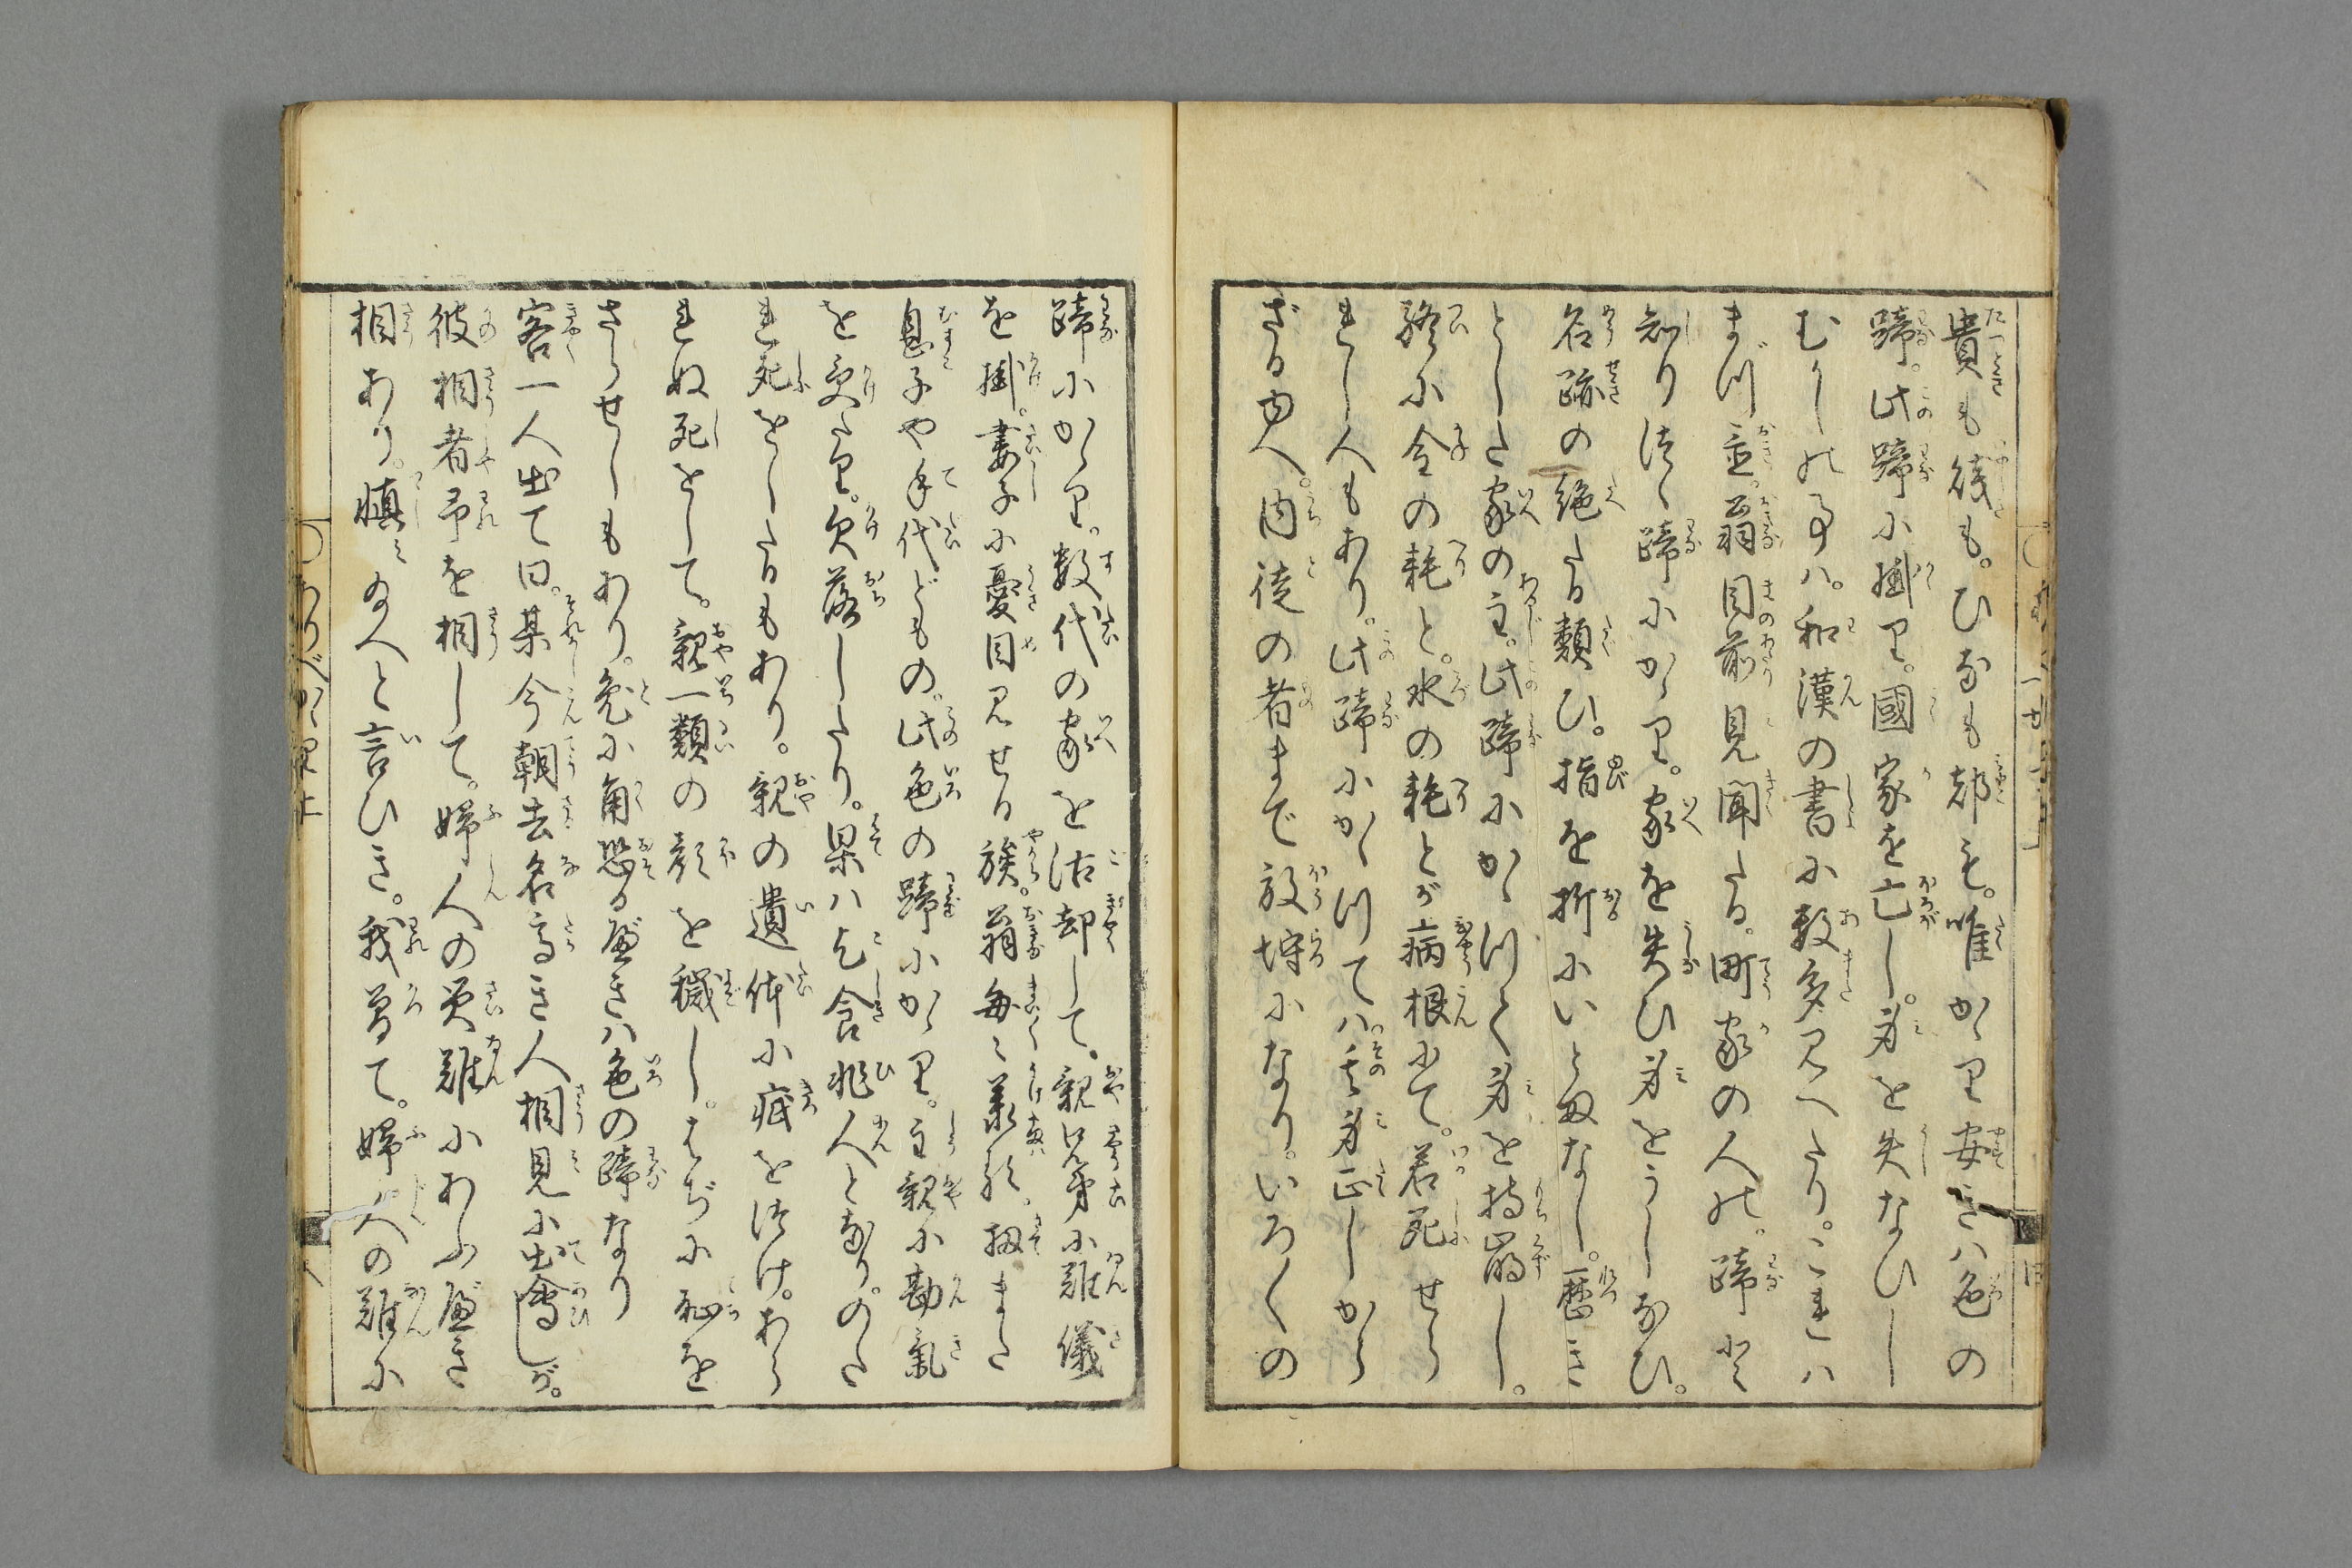 貴も賎も。ひなも都も。唯かゝり安きハ色の
蹄。此蹄に掛り。國家を亡し。身を失なひし
むかしの事ハ。和漢の書に数多見へたり。これハ
まづ置。翁目前見聞たる。町家の人の。蹄と
知り徒ゝ蹄にかゝり。家を失ひ身をうしなひ。
名跡の絶たる類ひ。指を折にいとまなし。歴き
としたる家の主。此蹄にかゝつて身を持崩し。
終に金の耗と。水の耗とが病根にて。若死せら
れし人もあり。此蹄にかゝつてハ。其身正しから
ざる由へ。内徒の者まで放埒になり。いろ〱の
蹄にかゝり。数代の家を沽却して。親兄弟に難儀
を掛。妻子に憂目見せる族。翁毎々承る。扨また
息子や手代どもの。此色の蹄にかゝり。主親に勘氣
を受たり。欠落したり。果ハ乞食非人となり。のた
れ死をしたるもあり。親の遺体に疵を徒け。あら
れぬ死をして。親一類の顔を穢し。はぢに恥を
さらせしもあり。兔に角恐る可きハ色の蹄なり
客一人出て曰。某今朝去名高き人相見に出會しが。
彼相者予を相して。婦人の災難にあふ可き
相あり。慎み給へと言ひき。我曽て。婦人の難に